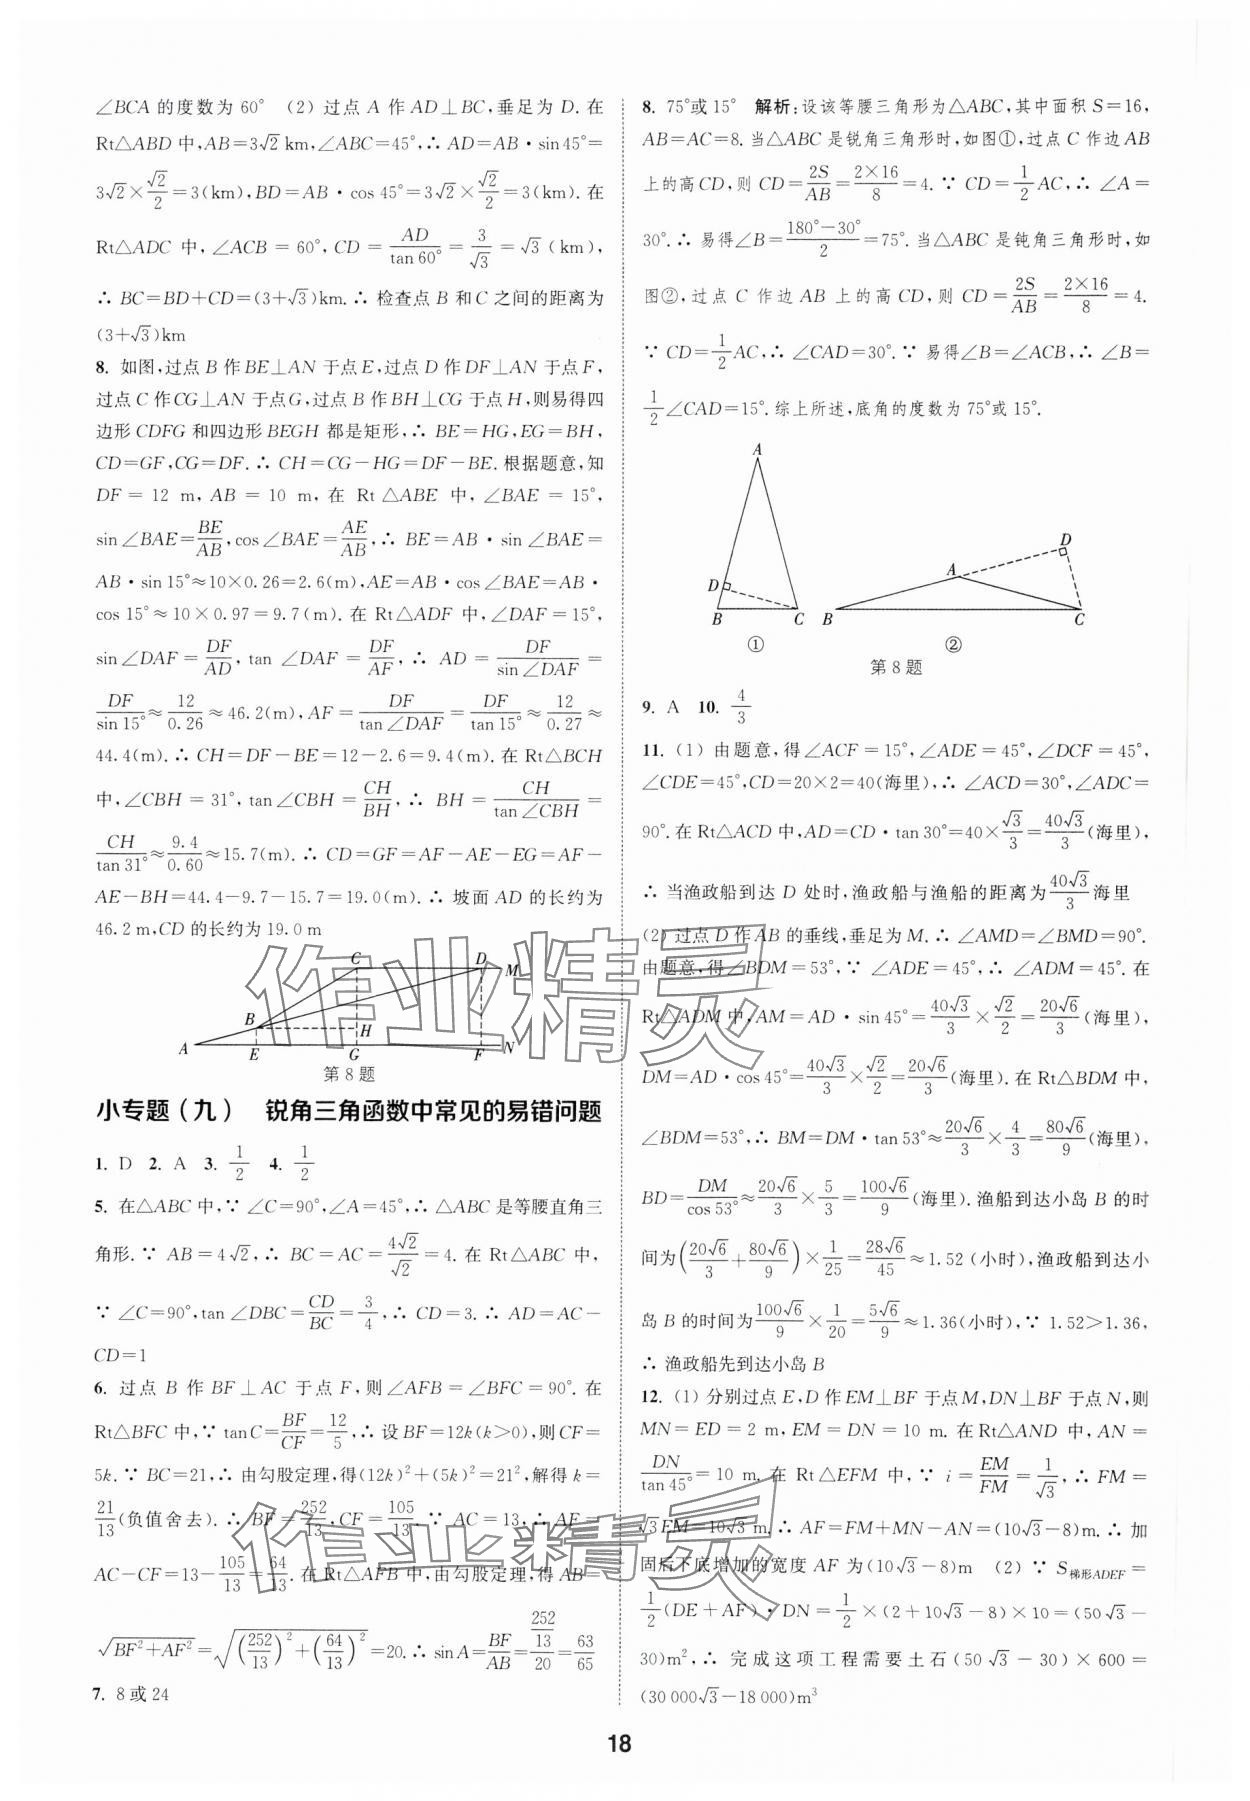 ∠BCA 的度数为 60° (2) 过点 A 作 AD⊥BC,垂足为 D. 在
Rt△ABD 中,AB=3√2 km,∠ABC=45°,∴ AD=AB·sin 45°=
3√2×√2/2=3(km),BD=AB·cos 45°=3√2×√2/2=3(km). 在
Rt△ADC 中,∠ACB=60°,CD=AD/tan 60°=3/√3=√3(km),
∴ BC=BD+CD=(3+√3)km.∴ 检查点 B 和 C 之间的距离为
(3+√3)km
8. 如图,过点 B 作 BE⊥AN 于点 E,过点 D 作 DF⊥AN 于点 F,
过点 C 作 CG⊥AN 于点 G,过点 B 作 BH⊥CG 于点 H,则易得四
边形 CDFG 和四边形 BEGH 都是矩形,∴ BE=HG,EG=BH,
CD=GF,CG=DF.∴ CH=CG-HG=DF-BE. 根据题意,知
DF=12 m,AB=10 m,在 Rt△ABE 中,∠BAE=15°,
sin∠BAE=BE/AB,cos∠BAE=AE/AB,∴ BE=AB·sin∠BAE=
AB·sin 15°≈10×0.26=2.6(m),AE=AB·cos∠BAE=AB·
cos 15°≈10×0.97=9.7(m). 在 Rt△ADF 中,∠DAF=15°,
sin∠DAF=DF/AD,tan∠DAF=DF/AF,∴ AD=DF/sin∠DAF=
DF/sin 15°≈12/0.26≈46.2(m),AF=DF/tan∠DAF=DF/tan 15°≈12/0.27≈
44.4(m).∴ CH=DF-BE=12-2.6=9.4(m). 在 Rt△BCH
中,∠CBH=31°,tan∠CBH=CH/BH,∴ BH=CH/tan∠CBH=
CH/tan 31°≈9.4/0.60≈15.7(m).∴ CD=GF=AF-AE-EG=AF-
AE-BH=44.4-9.7-15.7=19.0(m).∴ 坡面 AD 的长约为
46.2 m,CD 的长约为 19.0 m
C D M
B H
A E G F N
第 8 题
小专题(九) 锐角三角函数中常见的易错问题
1. D 2. A 3. 1/2 4. 1/2
5. 在△ABC 中,∵ ∠C=90°,∠A=45°,∴ △ABC 是等腰直角三
角形.∵ AB=4√2,∴ BC=AC=4√2/√2=4. 在 Rt△ABC 中,
∵ ∠C=90°,tan∠DBC=CD/BC=3/4,∴ CD=3.∴ AD=AC-
CD=1
6. 过点 B 作 BF⊥AC 于点 F,则∠AFB=∠BFC=90°. 在
Rt△BFC 中,∵ tan C=BF/CF=12/5,∴ 设 BF=12k(k>0),则 CF=
5k.∵ BC=21,∴ 由勾股定理,得(12k)²+(5k)²=21²,解得 k=
21/13(负值舍去).∴ BF=252/13,CF=105/13.∵ AC=13,∴ AF=
AC-CF=13-105/13=64/13. 在 Rt△AFB 中,由勾股定理,得 AB=
√(BF²+AF²)=√((252/13)²+(64/13)²)=20.∴ sin A=BF/AB=(252/13)/20=63/65
7. 8 或 24
8. 75°或 15° 解析:设该等腰三角形为△ABC,其中面积 S=16,
AB=AC=8. 当△ABC 是锐角三角形时,如图①,过点 C 作边 AB
上的高 CD,则 CD=2S/AB=2×16/8=4.∵ CD=1/2AC,∴ ∠A=
30°.∴ 易得∠B=(180°-30°)/2=75°. 当△ABC 是钝角三角形时,如
图②,过点 C 作边 AB 上的高 CD,则 CD=2S/AB=2×16/8=4.
∵ CD=1/2AC,∴ ∠CAD=30°.∵ 易得∠B=∠ACB,∴ ∠B=
1/2∠CAD=15°. 综上所述,底角的度数为 75°或 15°.
A
D
B C
①
A D
B C
②
第 8 题
9. A 10. 4/3
11. (1) 由题意,得∠ACF=15°,∠ADE=45°,∠DCF=45°,
∠CDE=45°,CD=20×2=40(海里),∴ ∠ACD=30°,∠ADC=
90°. 在 Rt△ACD 中,AD=CD·tan 30°=40×√3/3=40√3/3(海里),
∴ 当渔政船到达 D 处时,渔政船与渔船的距离为40√3/3海里
(2) 过点 D 作 AB 的垂线,垂足为 M.∴ ∠AMD=∠BMD=90°.
由题意,得∠BDM=53°,∵ ∠ADE=45°,∴ ∠ADM=45°. 在
Rt△ADM 中,AM=AD·sin 45°=40√3/3×√2/2=20√6/3(海里),
DM=AD·cos 45°=40√3/3×√2/2=20√6/3(海里). 在 Rt△BDM 中,
∠BDM=53°,∴ BM=DM·tan 53°≈20√6/3×4/3=80√6/9(海里),
BD=DM/cos 53°≈20√6/3×5/3=100√6/9(海里). 渔船到达小岛 B 的时
间为(20√6/3+80√6/9)×1/25=28√6/45≈1.52(小时),渔政船到达小
岛 B 的时间为100√6/9×1/20=5√6/9≈1.36(小时),∵ 1.52>1.36,
∴ 渔政船先到达小岛 B
12. (1) 分别过点 E,D 作 EM⊥BF 于点 M,DN⊥BF 于点 N,则
MN=ED=2 m,EM=DN=10 m. 在 Rt△AND 中,AN=
DN/tan 45°=10 m. 在 Rt△EFM 中,∵ i=EM/FM=1/√3,∴ FM=
√3EM=10√3 m.∴ AF=FM+MN-AN=(10√3-8)m.∴ 加
固后下底增加的宽度 AF 为(10√3-8)m (2) ∵ S梯形ADEF=
1/2(DE+AF)·DN=1/2×(2+10√3-8)×10=(50√3-
30)m²,∴ 完成这项工程需要土石(50√3-30)×600=
(30 000√3-18 000)m³
18
作业精灵
作业精灵